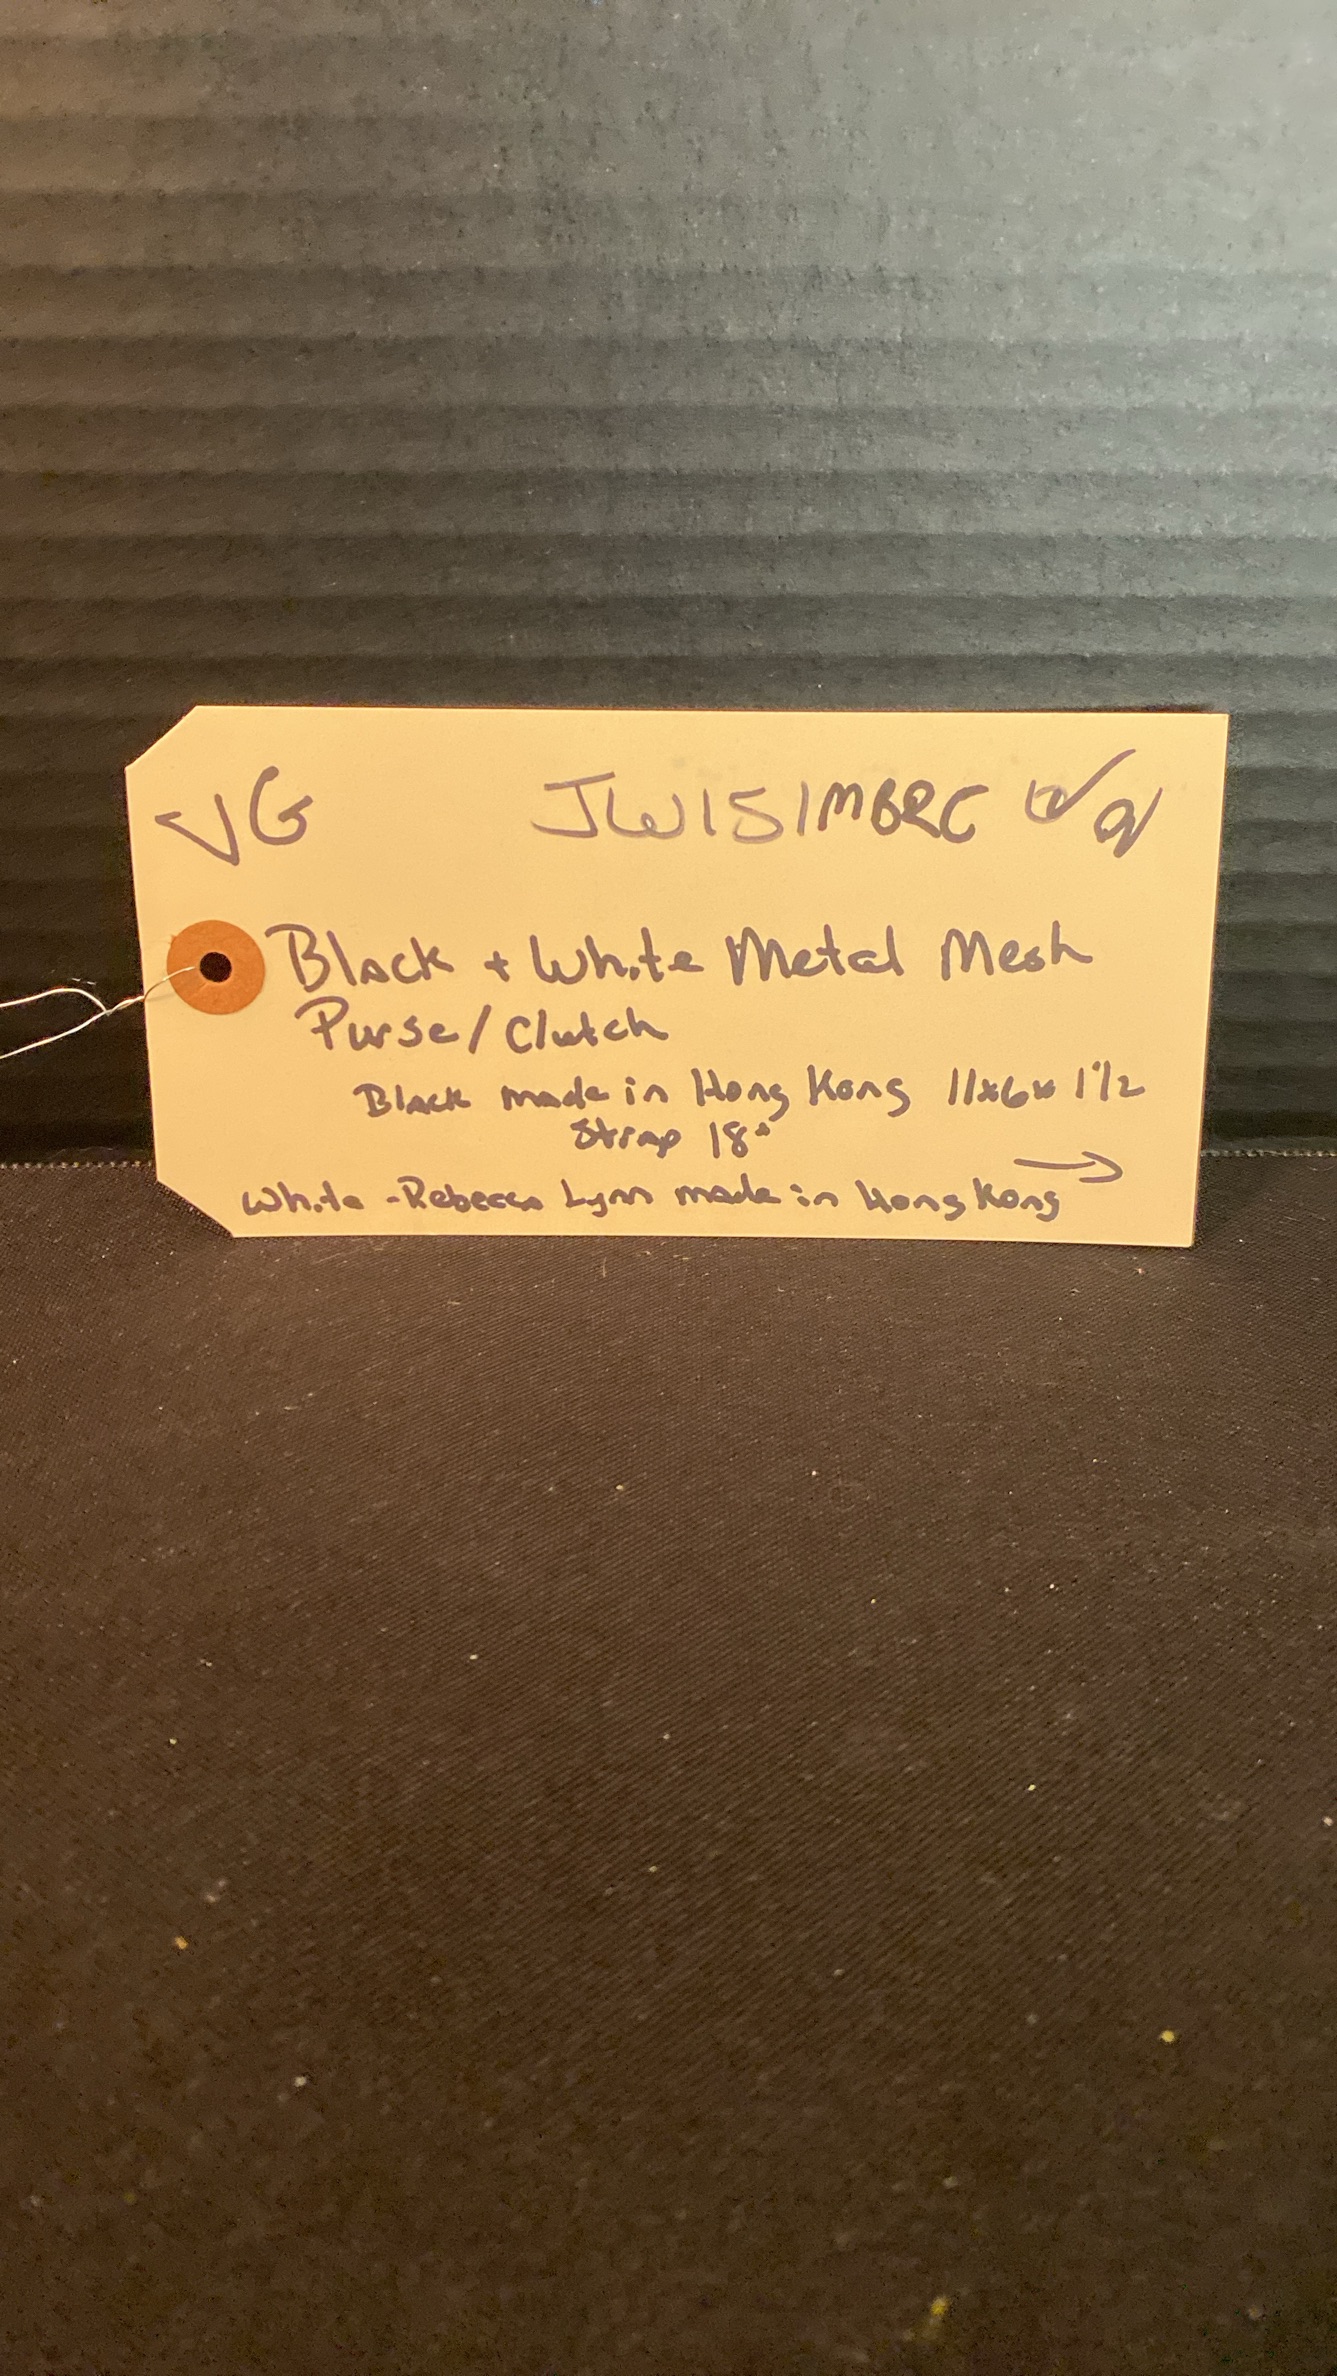 VG JW151MBRC
Black + White Metal Mesh
Purse/Clutch
Black made in Hong Kong 11x6x 1 1/2
Strap 18"
White - Rebecca Lynn made in Hong Kong →